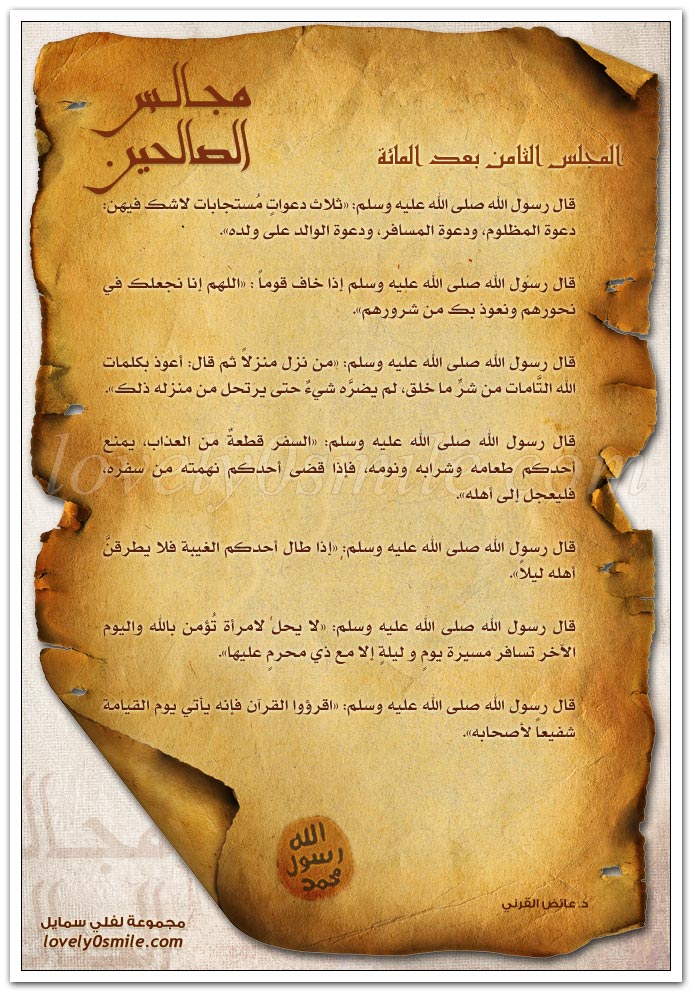 مجالس
الصالحين
المجلس الثامن بعد المائة
قال رسول الله صلى الله عليه وسلم: «ثلاث دعواتٍ مُستجابات لاشك فيهن:
دعوة المظلوم، ودعوة المسافر، ودعوة الوالد على ولده».
قال رسول الله صلى الله عليه وسلم إذا خاف قوماً : «اللهم إنا نجعلك في
نحورهم ونعوذ بك من شرورهم».
قال رسول الله صلى الله عليه وسلم: «من نزل منزلاً ثم قال: أعوذ بكلمات
الله التَّامات من شرِّ ما خلق، لم يضرَّه شيءٌ حتى يرتحل من منزله ذلك».
قال رسول الله صلى الله عليه وسلم: «السفر قطعةٌ من العذاب، يمنع
أحدكم طعامه وشرابه ونومه، فإذا قضى أحدكم نهمته من سفره،
فليعجل إلى أهله».
قال رسول الله صلى الله عليه وسلم: «إذا طال أحدكم الغيبة فلا يطرقنَّ
أهله ليلاً».
قال رسول الله صلى الله عليه وسلم: «لا يحلُ لامرأة تُؤمن بالله واليوم
الآخر تسافر مسيرة يومٍ و ليلةٍ إلا مع ذي محرمٍ عليها».
قال رسول الله صلى الله عليه وسلم: «اقرؤوا القرآن فإنه يأتي يوم القيامة
شفيعاً لأصحابه».
lovely0smile.com
الله
رسول
محمد
د.عائض القرني
مجموعة لفلي سمايل
lovely0smile.com